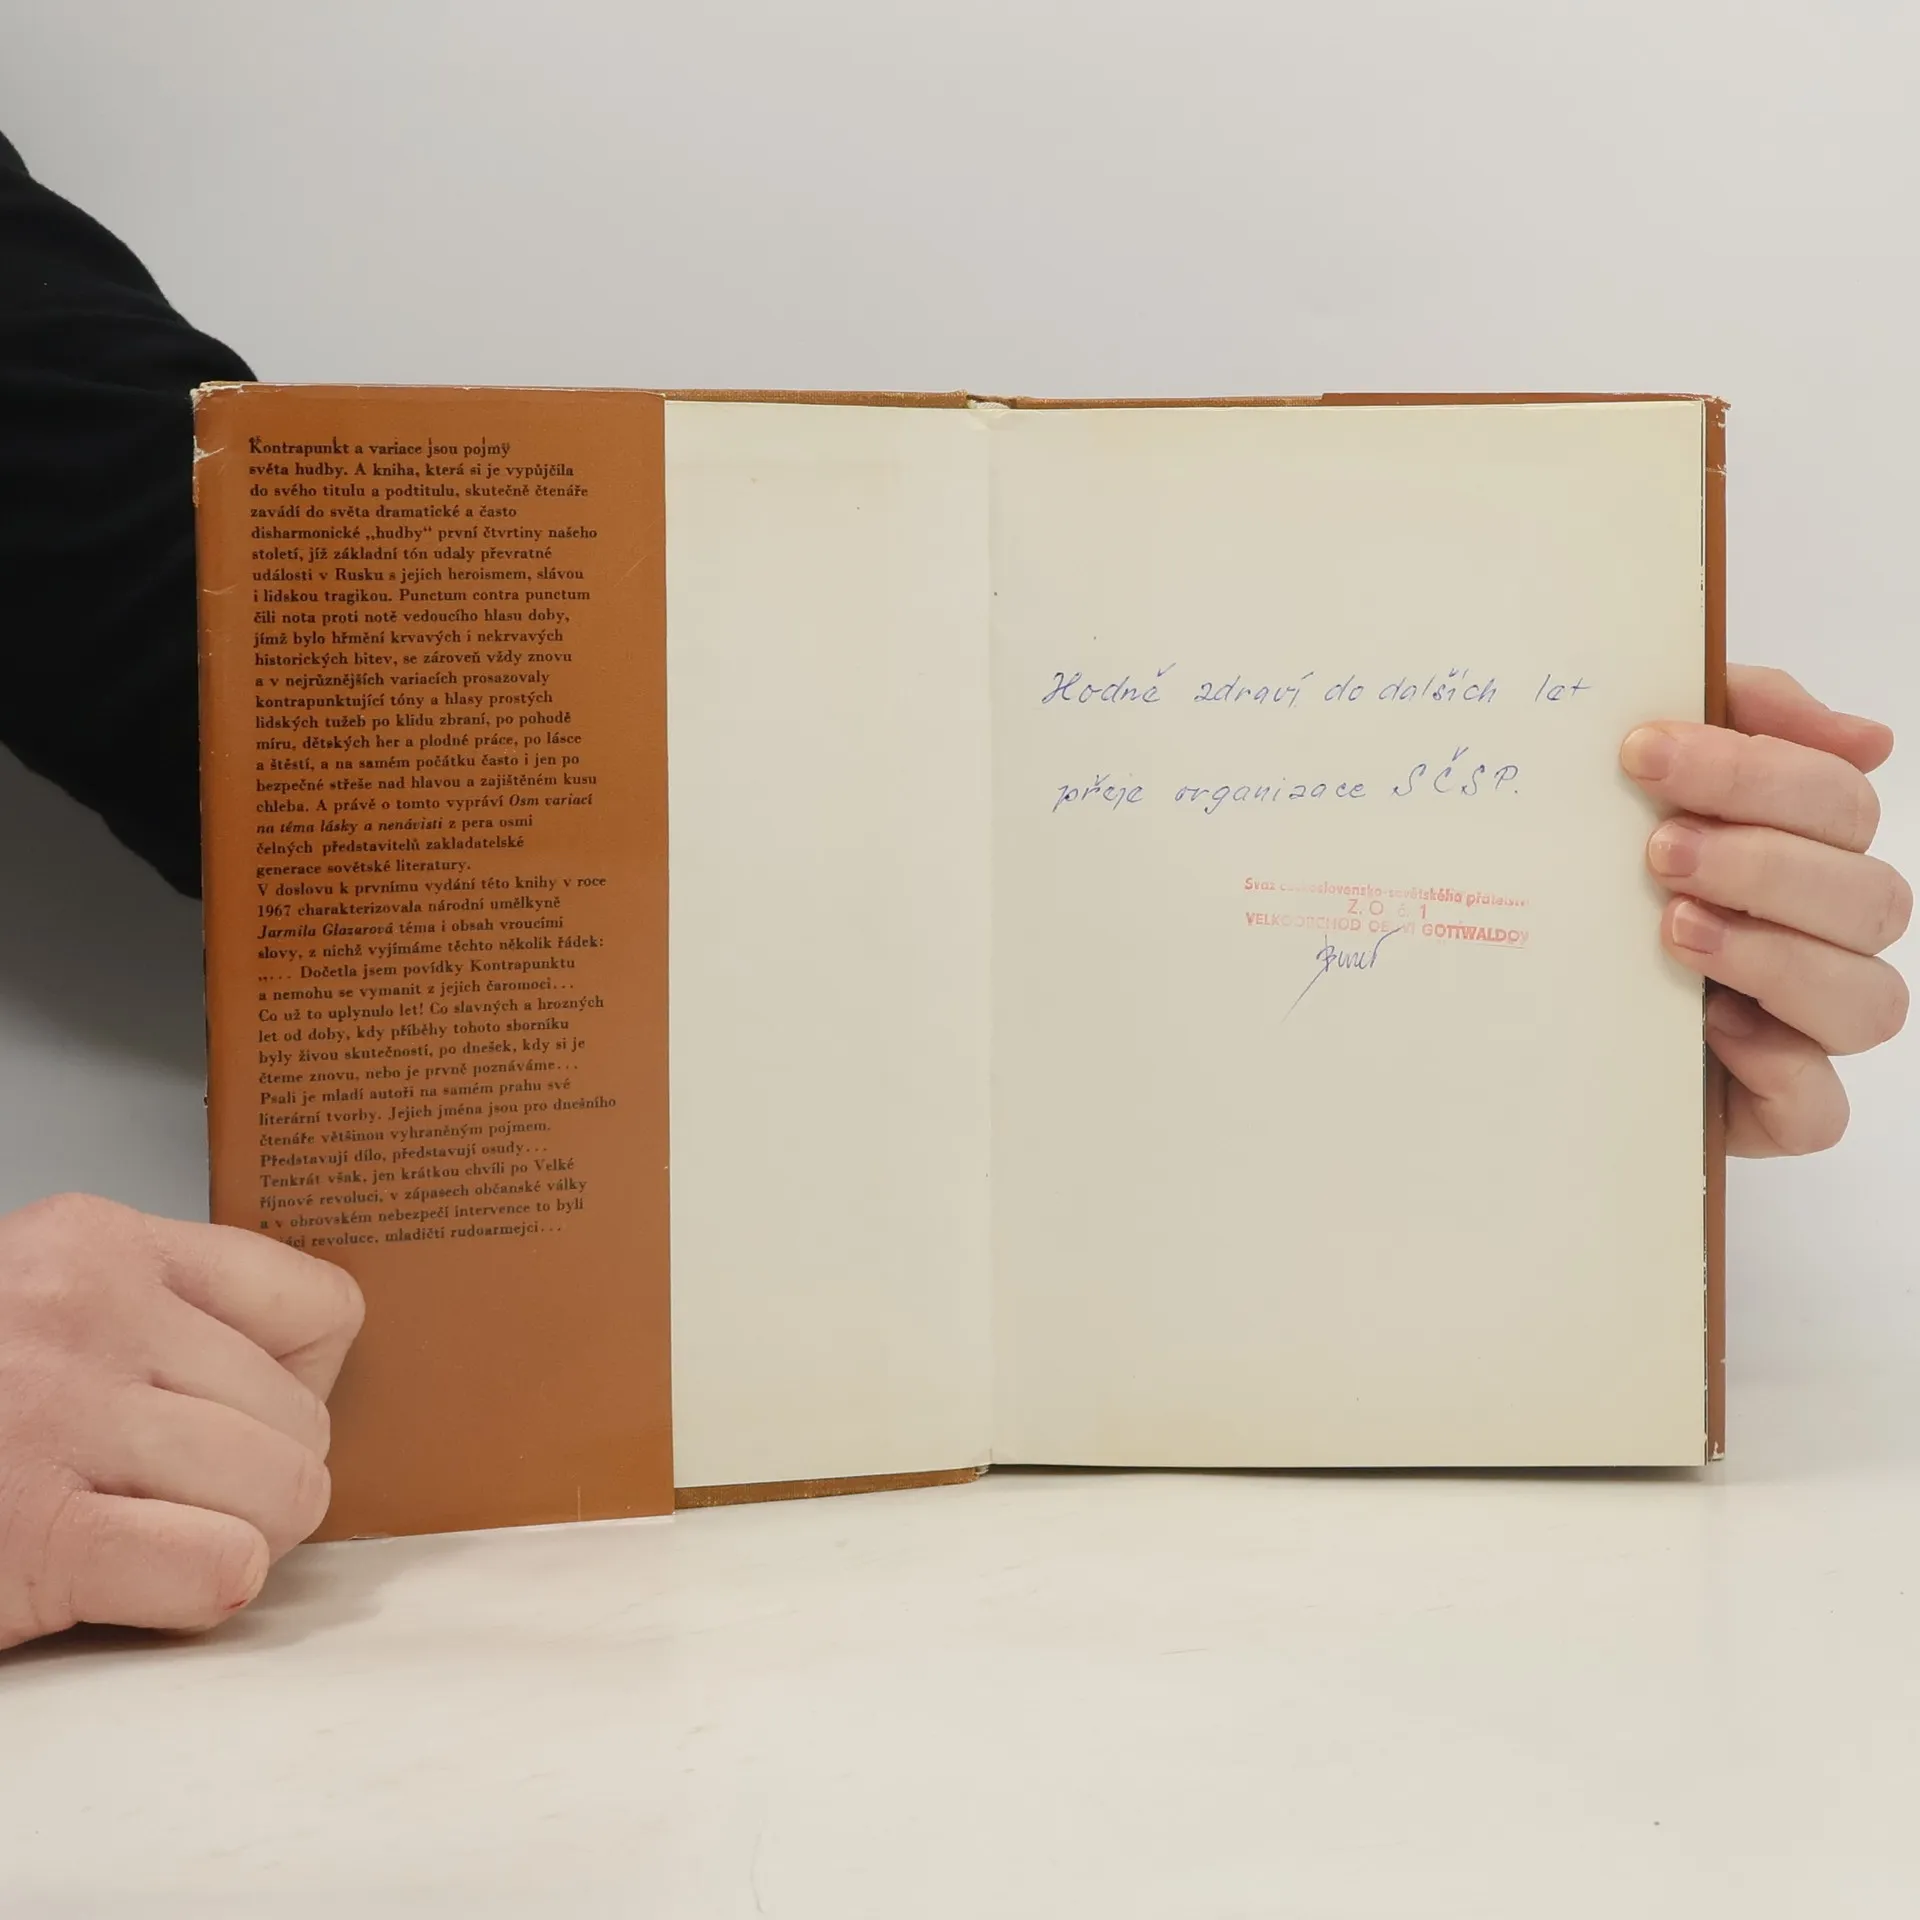 Kontrapunkt a variace jsou pojmy
světa hudby. A kniha, která si je vypůjčila
do svého titulu a podtitulu, skutečně čtenáře
zavádí do světa dramatické a často
disharmonické „hudby“ první čtvrtiny našeho
století, jíž základní tón udaly převratné
události v Rusku s jejich heroismem, slávou
i lidskou tragikou. Punctum contra punctum
čili nota proti notě vedoucího hlasu doby,
jímž bylo hřmění krvavých i nekrvavých
historických bitev, se zároveň vždy znovu
a v nejrůznějších variacích prosazovaly
kontrapunktující tóny a hlasy prostých
lidských tužeb po klidu zbraní, po pohodě
míru, dětských her a plodné práce, po lásce
a štěstí, a na samém počátku často i jen po
bezpečné střeše nad hlavou a zajištěném kusu
chleba. A právě o tomto vypráví Osm variací
na téma lásky a nenávisti z pera osmi
čelných představitelů zakladatelské
generace sovětské literatury.
V doslovu k prvnímu vydání této knihy v roce
1967 charakterizovala národní umělkyně
Jarmila Glazarová téma i obsah vroucími
slovy, z nichž vyjímáme těchto několik řádek:
„... Dočetla jsem povídky Kontrapunktu
a nemohu se vymanit z jejich čaromoci...
Co už to uplynulo let! Co slavných a hrozných
let od doby, kdy příběhy tohoto sborníku
byly živou skutečností, po dnešek, kdy si je
čteme znovu, nebo je prvně poznáváme...
Psali je mladí autoři na samém prahu své
literární tvorby. Jejich jména jsou pro dnešního
čtenáře většinou vyhraněným pojmem.
Představují dílo, představují osudy...
Tenkrát však, jen krátkou chvíli po Velké
říjnové revoluci, v zápasech občanské války
a v obrovském nebezpečí intervence to byli
revoluce, mladičtí rudoarmejci...
Hodně zdraví do dalších let
přeje organizace SČSP.
Svaz československo-sovětského přátelství
Z. O. č. 1
VELKOOBCHOD GOTTWALDOV